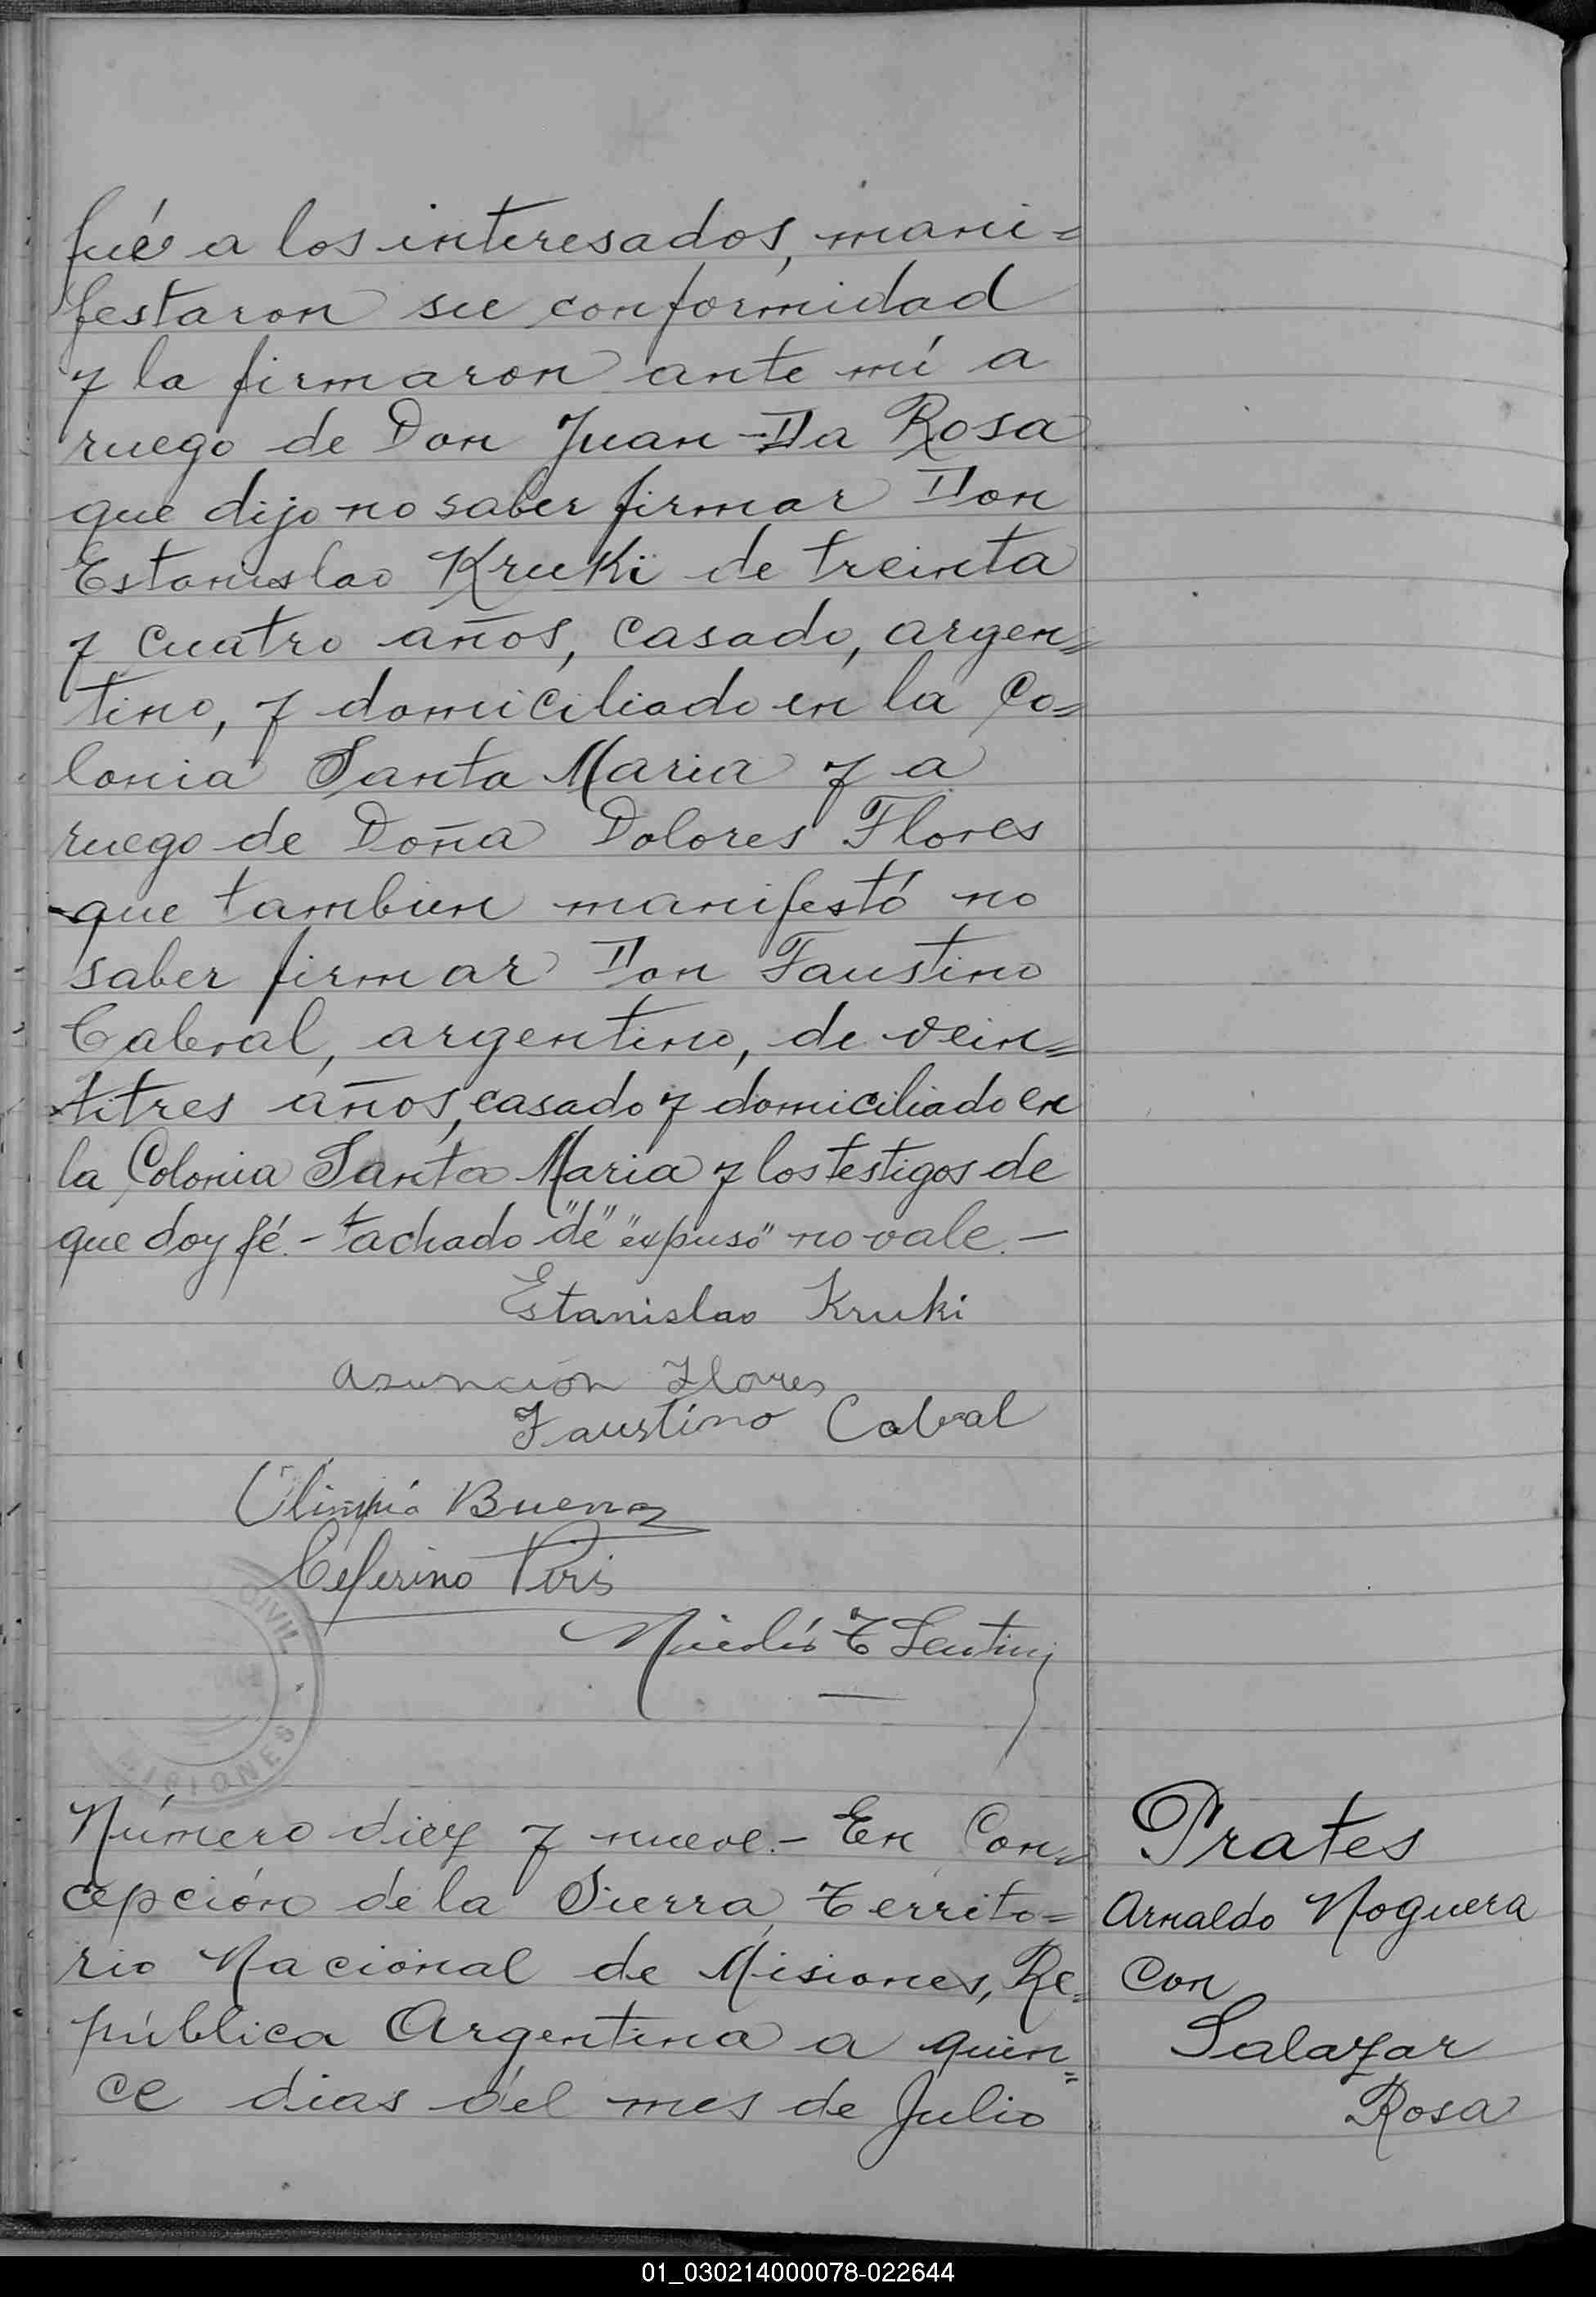 fué a los interesados, mani=
festaron su conformidad
y la firmaron ante mí a
ruego de Don Juan Da Rosa
que dijo no saber firmar Don
Estanislao Kruki de treinta
y cuatro años, casado, argen=
tino, y domiciliado en la Co=
lonia Santa Maria y a
ruego de Doña Dolores Flores
que tambien manifestó no
saber firmar Don Faustino
Cabral, argentino, de vein=
titres años, casado y domiciliado en
la Colonia Santa Maria y los testigos de
que doy fé.- tachado "de" "expuso" no vale.-
Estanislao Kruki
Asunción Flores
Faustino Cabral
Olimpio Bueno
Ceferino Piris
Nicolás T
CIVIL
MISIONES
Número diez y nueve.- En Con=
cepción de la Sierra, Territo=
rio Nacional de Misiones, Re=
pública Argentina a quin=
ce dias del mes de Julio
Prates
Arnaldo Noguera
Con
Salazar
Rosa
01_030214000078-022644